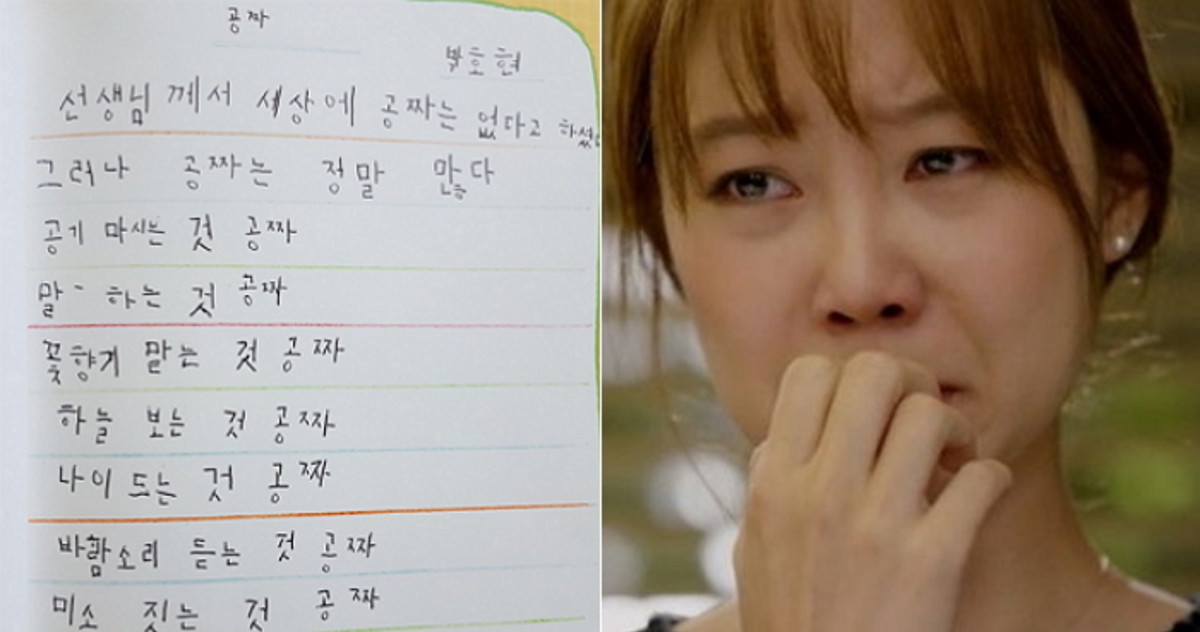 공짜
박호현
선생님 께서 세상에 공짜는 없다고 하셨다
그러나 공짜는 정말 많다
공기 마시는 것 공짜
말 하는 것 공짜
꽃향기 맡는 것 공짜
하늘 보는 것 공짜
나이 드는 것 공짜
바람소리 듣는 것 공짜
미소 짓는 것 공짜